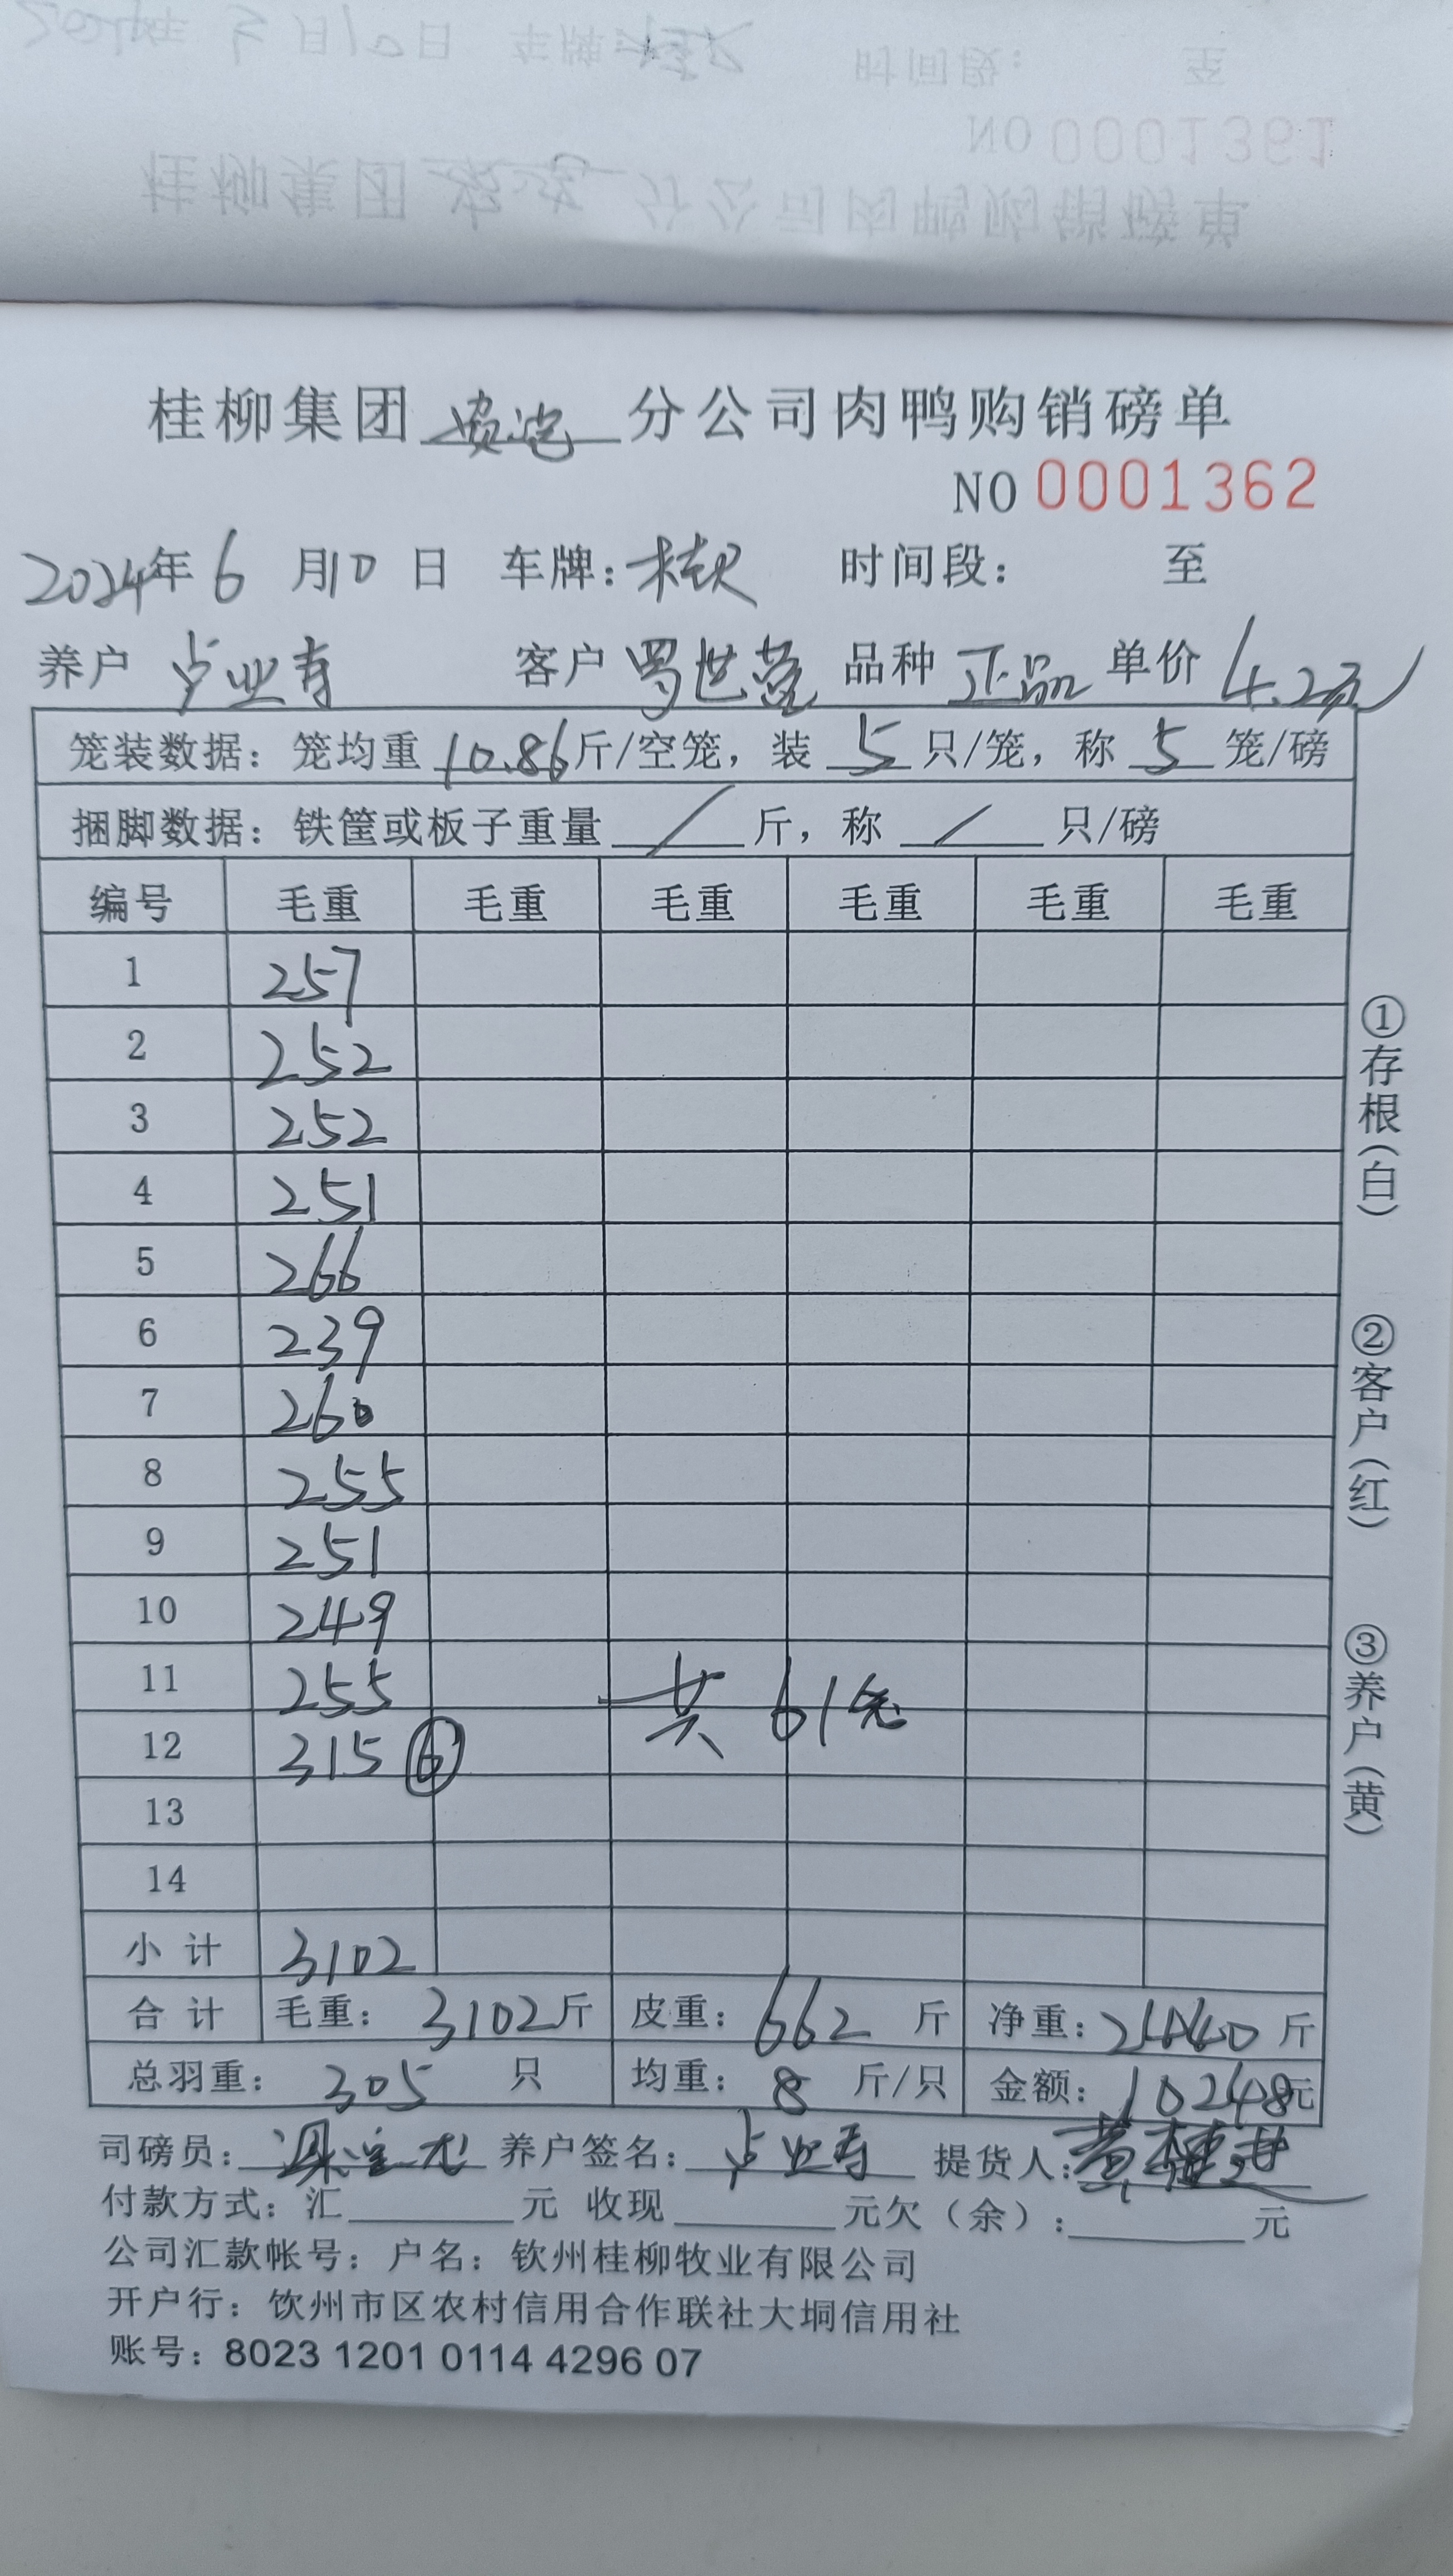 NO 0001361
桂柳集团 分公司肉鸭购销磅单
NO 0001362
2024年 6 月10 日 车牌: 时间段: 至
养户 卢业寿 客户 罗世 品种 正品 单价 4.2元
笼装数据: 笼均重 10.86斤/空笼, 装 5 只/笼, 称 5 笼/磅
捆脚数据: 铁筐或板子重量 / 斤, 称 / 只/磅
编号 毛重 毛重 毛重 毛重 毛重 毛重
1 257
2 252
3 252
4 251
5 266
6 239
7 260
8 255
9 251
10 249
11 255
12 315 ⑥ 共 61笼
13
14
小 计 3102
合 计 毛重: 3102斤 皮重: 662 斤 净重: 2440 斤
总羽重: 305 只 均重: 8 斤/只 金额: 10248元
司磅员: 养户签名: 卢业寿 提货人:
付款方式: 汇 元 收现 元欠(余): 元
公司汇款帐号: 户名: 钦州桂柳牧业有限公司
开户行: 钦州市区农村信用合作联社大垌信用社
账号: 8023 1201 0114 4296 07
①存根(白)
②客户(红)
③养户(黄)